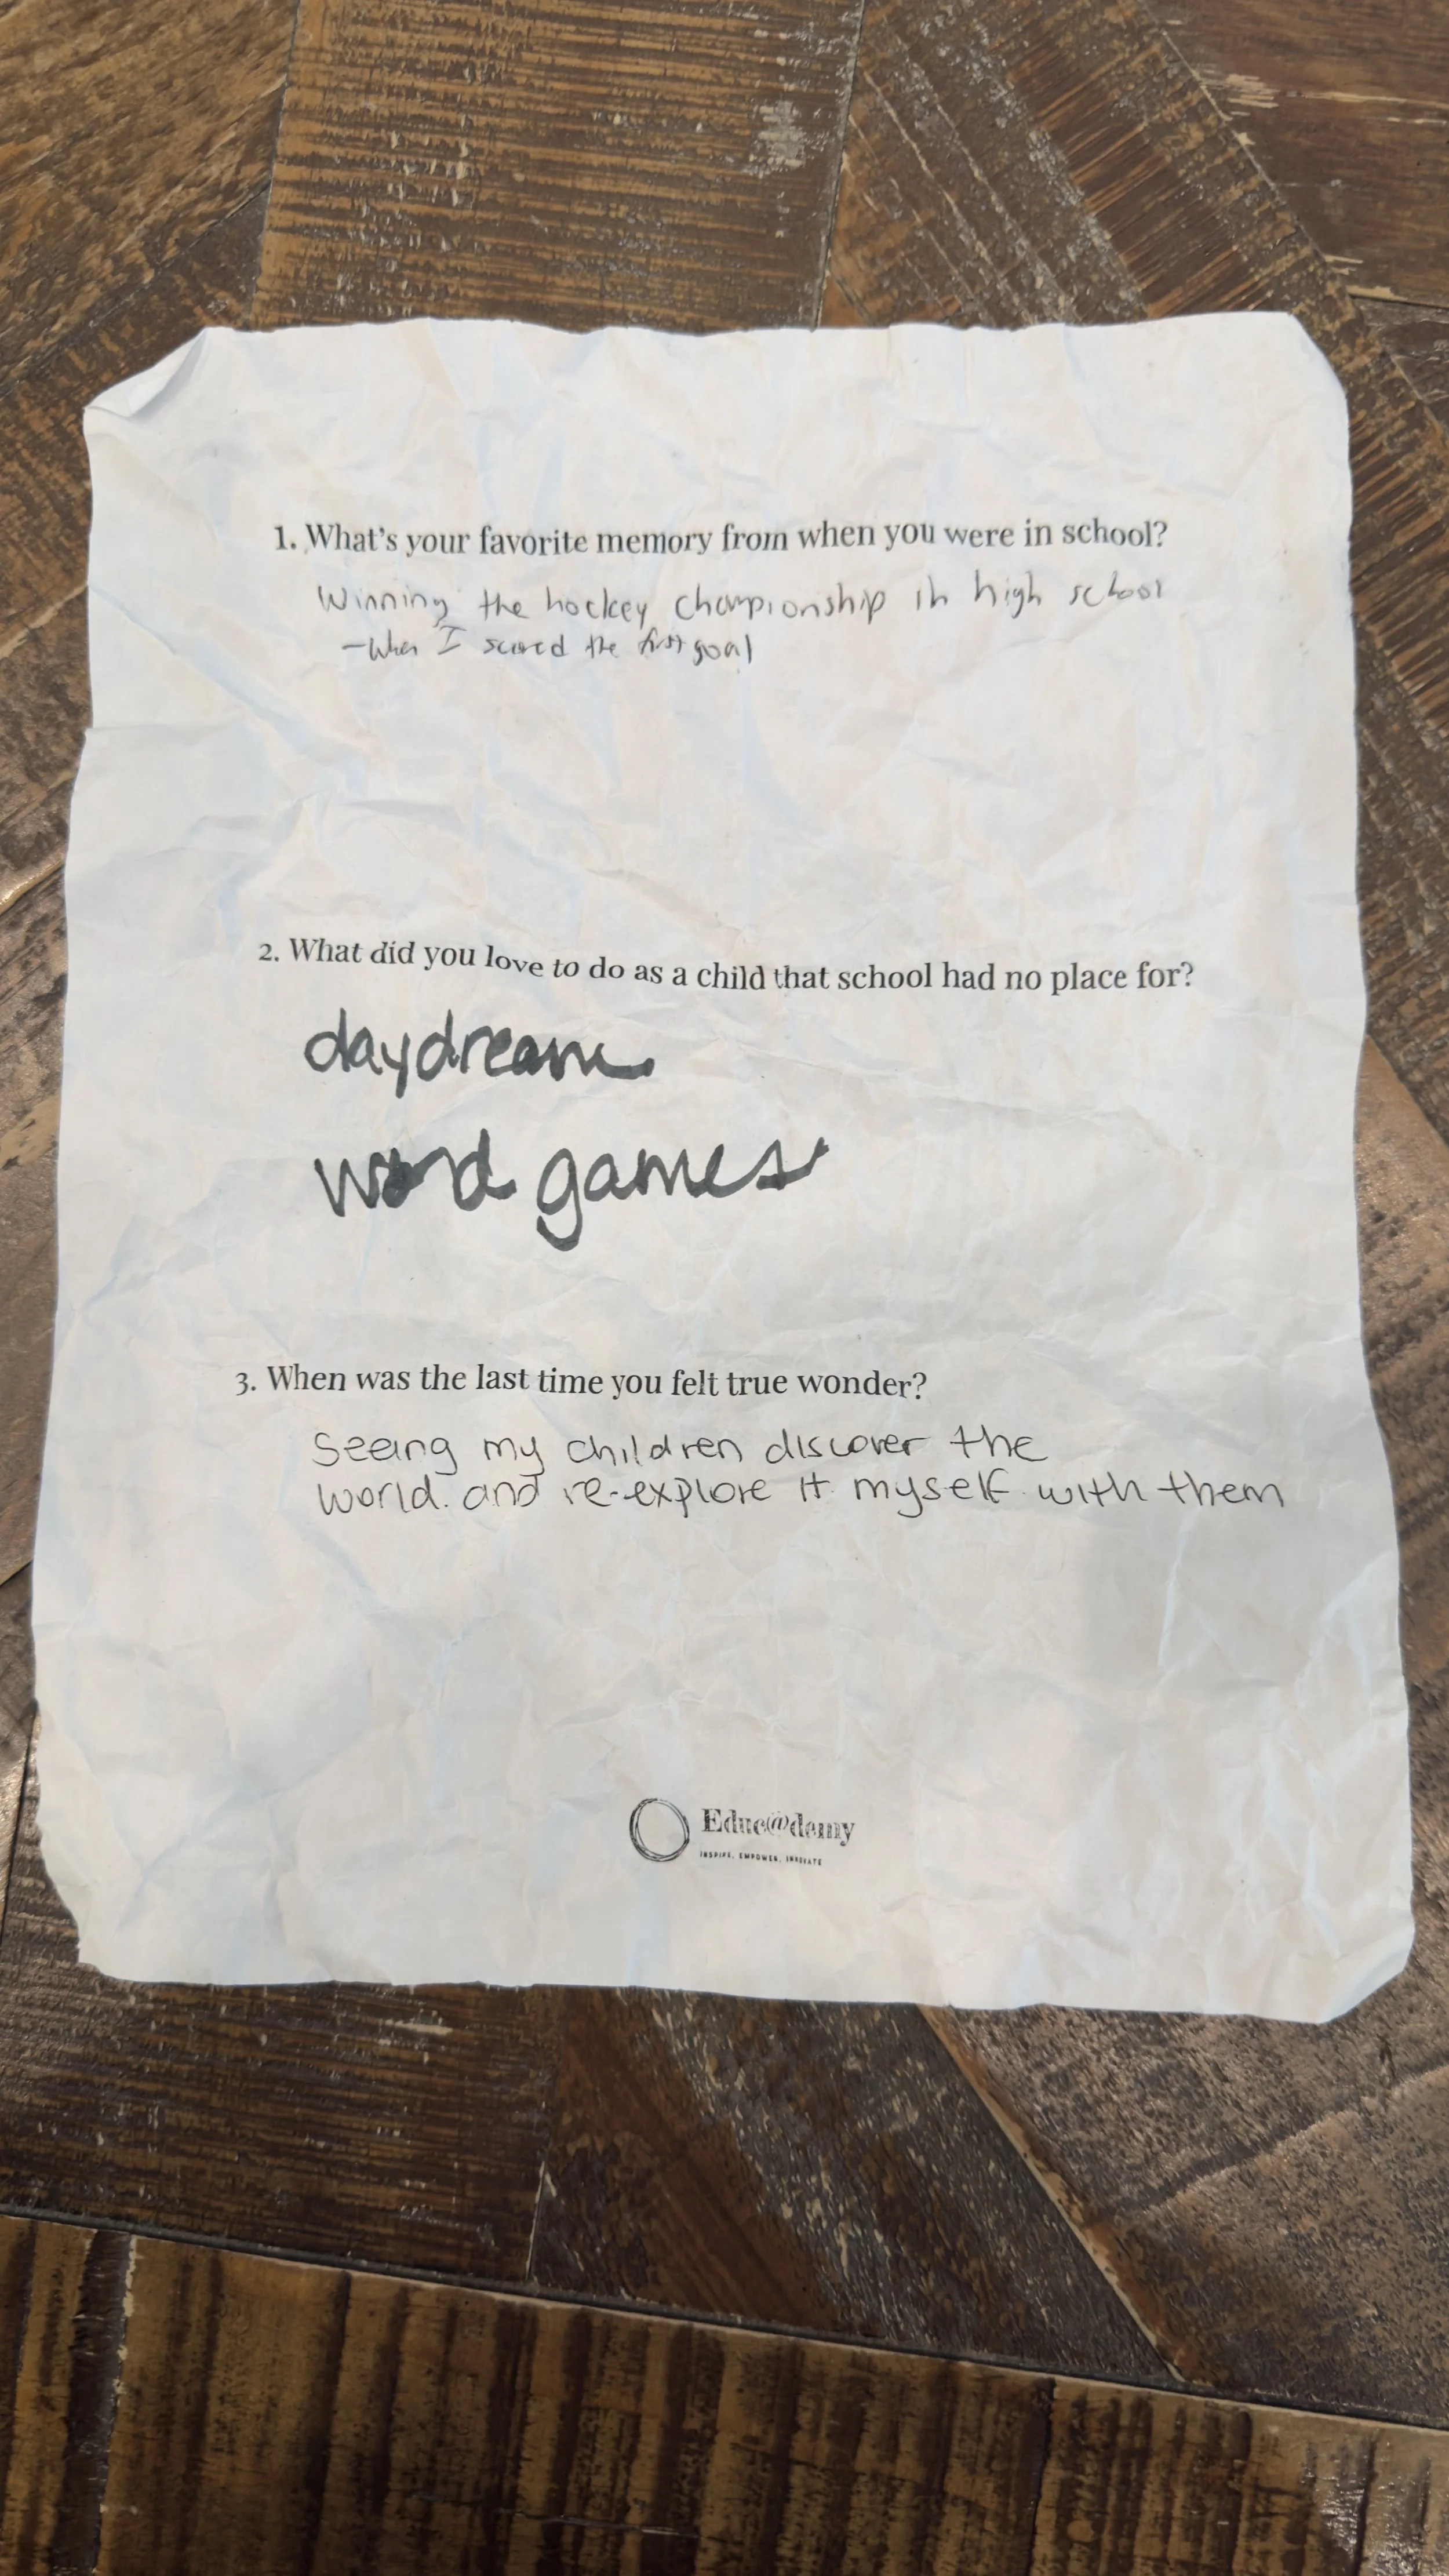 1. What's your favorite memory from when you were in school?
Winning the hockey championship in high school
- When I scored the first goal
2. What did you love to do as a child that school had no place for?
daydream
word games
3. When was the last time you felt true wonder?
Seeing my children discover the
world. and re-explore it myself with them
Educ@demy
INSPIRE, EMPOWER, INNOVATE